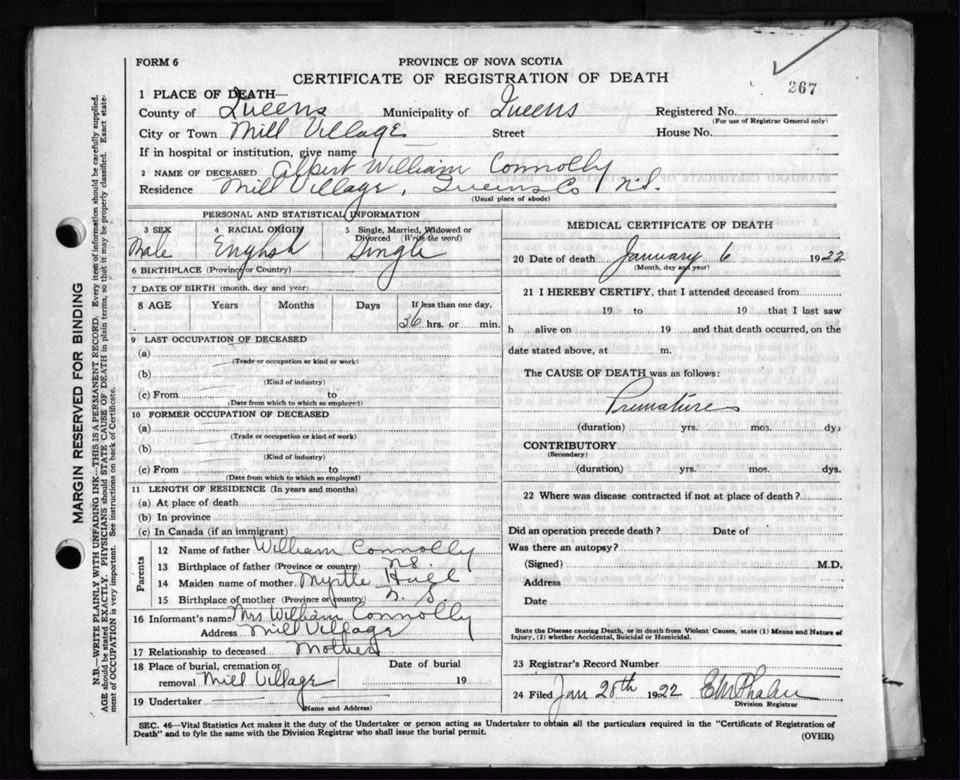 FORM 6
PROVINCE OF NOVA SCOTIA
CERTIFICATE OF REGISTRATION OF DEATH
267
1 PLACE OF DEATH—
County of Queens Municipality of Queens Registered No.
(For use of Registrar General only)
City or Town Mill Village Street House No.
If in hospital or institution, give name
2 NAME OF DECEASED Albert William Connolly
Residence Mill Village, Queens Co N.S.
(Usual place of abode)
PERSONAL AND STATISTICAL INFORMATION
3 SEX 4 RACIAL ORIGIN 5 Single, Married, Widowed or Divorced (Write the word)
Male English Single
6 BIRTHPLACE (Province or Country)
7 DATE OF BIRTH (month, day and year)
8 AGE Years Months Days If less than one day,
36 hrs. or min.
9 LAST OCCUPATION OF DECEASED
(a)
(Trade or occupation or kind or work)
(b)
(Kind of industry)
(c) From to
(Date from which to which so employed)
10 FORMER OCCUPATION OF DECEASED
(a)
(Trade or occupation or kind of work)
(b)
(Kind of industry)
(c) From to
(Date from which to which so employed)
11 LENGTH OF RESIDENCE (In years and months)
(a) At place of death
(b) In province
(c) In Canada (if an immigrant)
Parents
12 Name of father William Connolly
13 Birthplace of father (Province or country) N.S.
14 Maiden name of mother Myrtle
15 Birthplace of mother (Province or country) N. S.
16 Informant's name Mrs William Connolly
Address Mill Village
17 Relationship to deceased Mother
18 Place of burial, cremation or removal Mill Village Date of burial 19
19 Undertaker
(Name and Address)
MEDICAL CERTIFICATE OF DEATH
20 Date of death January 6 1922
(Month, day and year)
21 I HEREBY CERTIFY, that I attended deceased from
19 to 19 that I last saw
h alive on 19 and that death occurred, on the
date stated above, at m.
The CAUSE OF DEATH was as follows:
Premature
(duration) yrs. mos. dys
CONTRIBUTORY
(Secondary)
(duration) yrs. mos. dys.
22 Where was disease contracted if not at place of death?
Did an operation precede death? Date of
Was there an autopsy?
(Signed) M.D.
Address
Date
State the Disease causing Death, or in death from Violent Causes, state (1) Means and Nature of
Injury, (2) whether Accidental, Suicidal or Homicidal.
23 Registrar's Record Number
24 Filed Jan 20th 1922 E M Phalen
Division Registrar
SEC. 46—Vital Statistics Act makes it the duty of the Undertaker or person acting as Undertaker to obtain all the particulars required in the "Certificate of Registration of
Death" and to fyle the same with the Division Registrar who shall issue the burial permit.
(OVER)
MARGIN RESERVED FOR BINDING
N.B.—WRITE PLAINLY WITH UNFADING INK—THIS IS A PERMANENT RECORD. Every item of information should be carefully supplied.
AGE should be stated EXACTLY. PHYSICIANS should STATE CAUSE OF DEATH in plain terms, so that it may be properly classified. Exact state-
ment of OCCUPATION is very important. See instructions on back of Certificate.